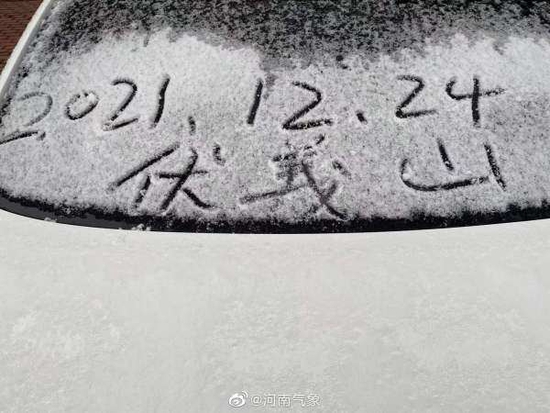 2021.12.24
伏羲山
@河南气象